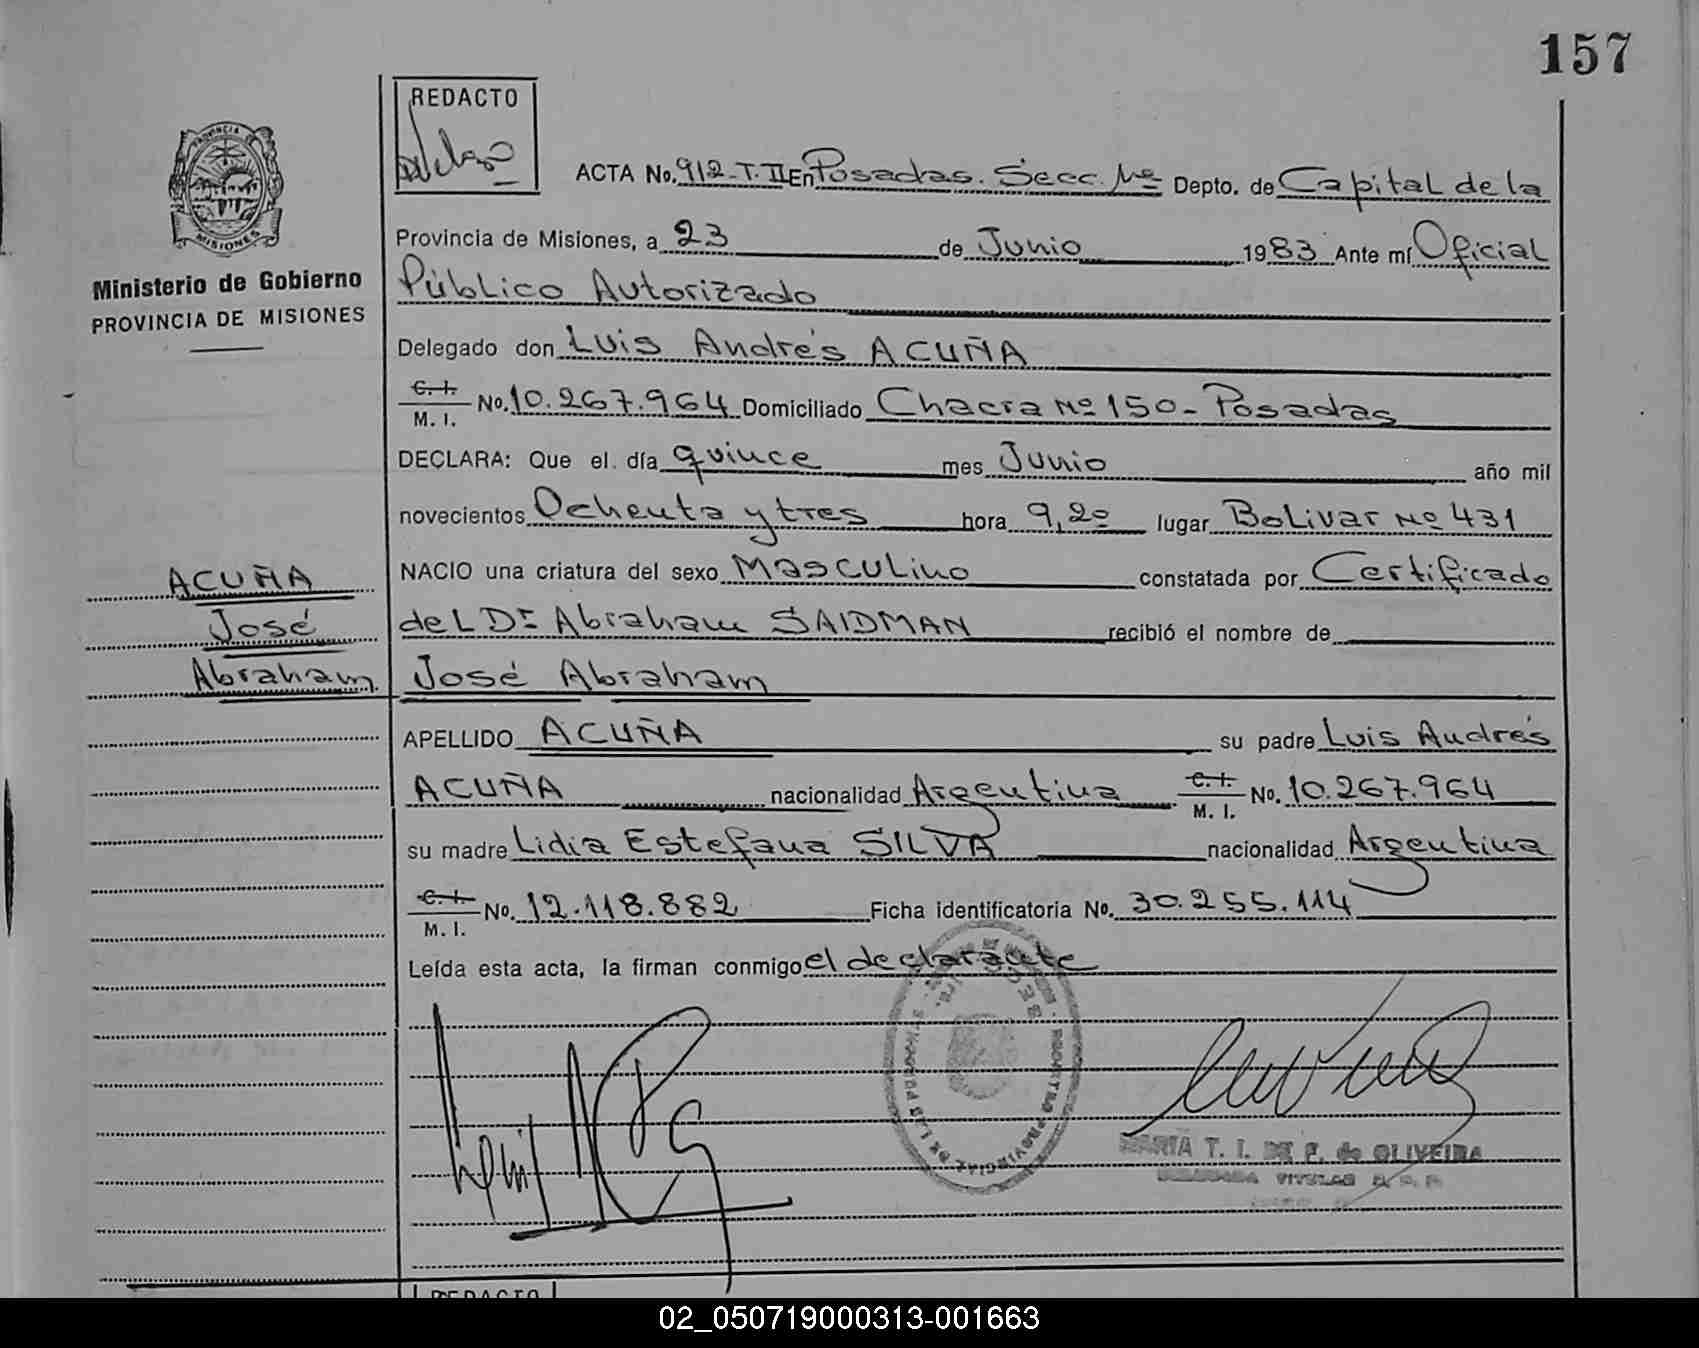 157
REDACTO
ACTA No. 912-T. II En Posadas. Secc. Nº Depto. de Capital de la
PROVINCIA
MISIONES
Ministerio de Gobierno
PROVINCIA DE MISIONES
Provincia de Misiones, a 23 de Junio 1983 Ante mí Oficial
Público Autorizado
Delegado don Luis Andrés ACUÑA
C. I.
M. I. No. 10.267.964 Domiciliado Chacra Nº 150 - Posadas
DECLARA: Que el día quince mes Junio año mil
novecientos Ochenta y tres hora 9,20 lugar Bolivar Nº 431
NACIO una criatura del sexo Masculino constatada por Certificado
del Dr Abraham SAIDMAN recibió el nombre de
ACUÑA
José
Abraham
José Abraham
APELLIDO ACUÑA su padre Luis Andrés
ACUÑA nacionalidad Argentina C. I. M. I. No. 10.267.964
su madre Lidia Estefana SILVA nacionalidad Argentina
C. I.
M. I. No. 12.118.882 Ficha identificatoria No. 30.255.114
Leída esta acta, la firman conmigo el declarante
MARIA T. I. DE F. de OLIVEIRA
REDACTO
02_050719000313-001663